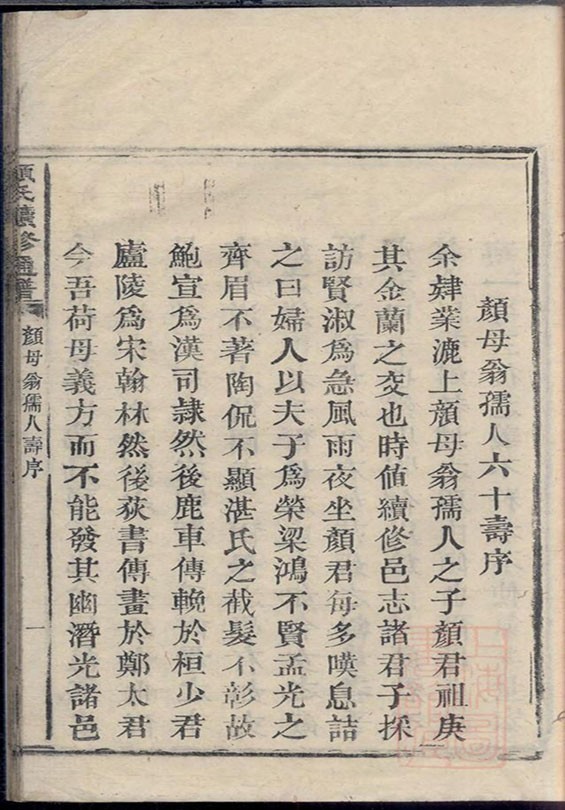 顏母翁孺人六十壽序
余肄業漉上顏母翁孺人之子顏君祖庚
其金蘭之交也時値續修邑志諸君子採
訪賢淑爲急風雨夜坐顏君每多嘆息詰
之曰婦人以夫子爲榮梁鴻不賢孟光之
齊眉不著陶侃不顯湛氏之截髮不彰故
鮑宣爲漢司隷然後鹿車傳輓於桓少君
廬陵爲宋翰林然後荻書傳畫於鄭太君
今吾荷母義方而不能發其幽潛光諸邑
顏氏續修通譜
顏母翁孺人壽序
一